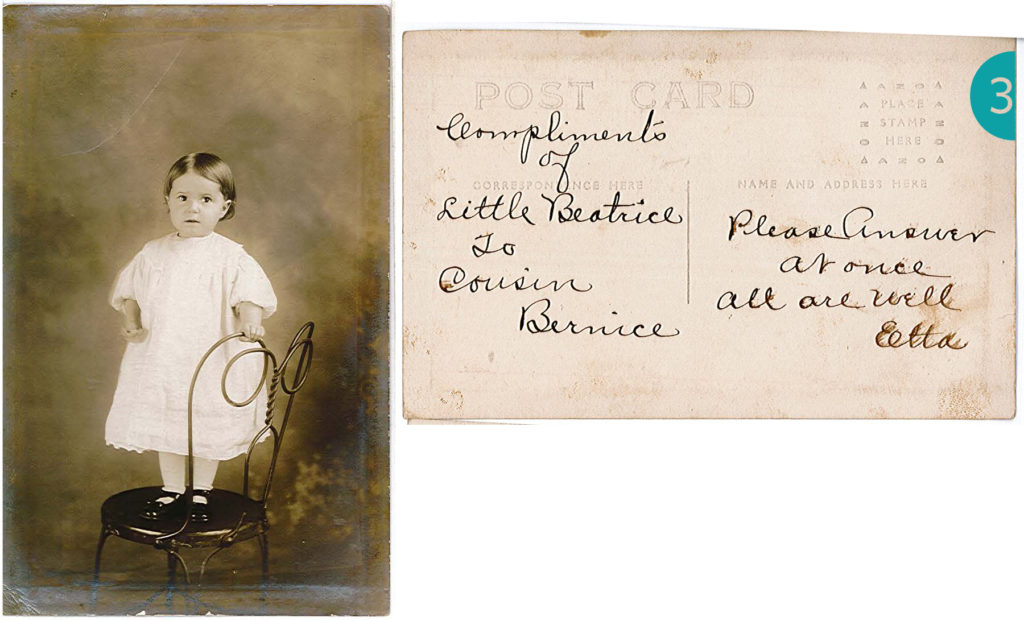 POST CARD
Compliments
of
CORRESPONDENCE HERE
Little Beatrice
To
Cousin
Bernice
AZO
PLACE
STAMP
HERE
AZO
NAME AND ADDRESS HERE
Please Answer
at once
all are well
Etta
3